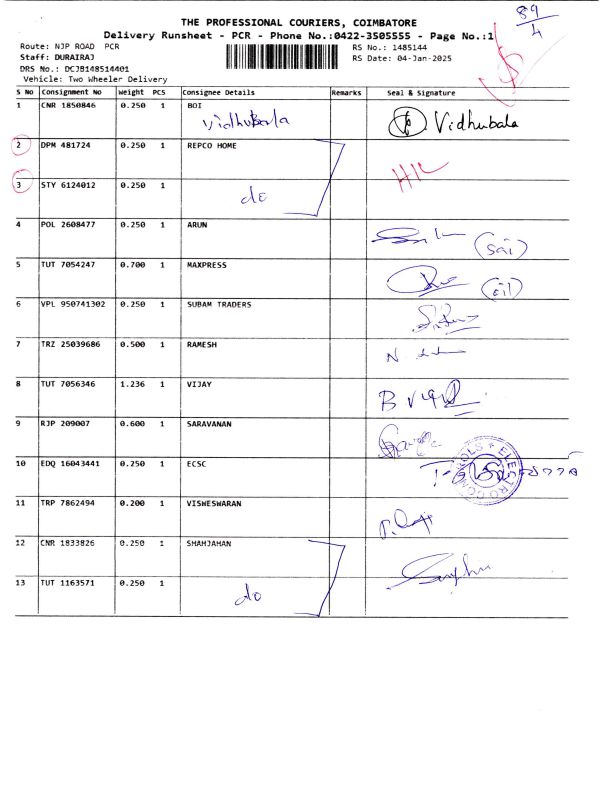 89/4
THE PROFESSIONAL COURIERS, COIMBATORE
Delivery Runsheet - PCR - Phone No.:0422-3505555 - Page No.:1
Route: NJP ROAD PCR RS No.: 1485144
Staff: DURAIRAJ RS Date: 04-Jan-2025
DRS No.: DCJB148514401
Vehicle: Two Wheeler Delivery
S No Consignment No Weight PCS Consignee Details Remarks Seal & Signature
1 CNR 1850846 0.250 1 BOI
Vidhubala Vidhubala
2 DPM 481724 0.250 1 REPCO HOME
3 STY 6124012 0.250 1
do
4 POL 2608477 0.250 1 ARUN
(sai)
5 TUT 7054247 0.700 1 MAXPRESS
6 VPL 950741302 0.250 1 SUBAM TRADERS
7 TRZ 25039686 0.500 1 RAMESH
8 TUT 7056346 1.236 1 VIJAY
9 RJP 209007 0.600 1 SARAVANAN
10 EDQ 16043441 0.250 1 ECSC
ELECTRO CONTROLS
11 TRP 7862494 0.200 1 VISWESWARAN
12 CNR 1833826 0.250 1 SHAHJAHAN
13 TUT 1163571 0.250 1
do